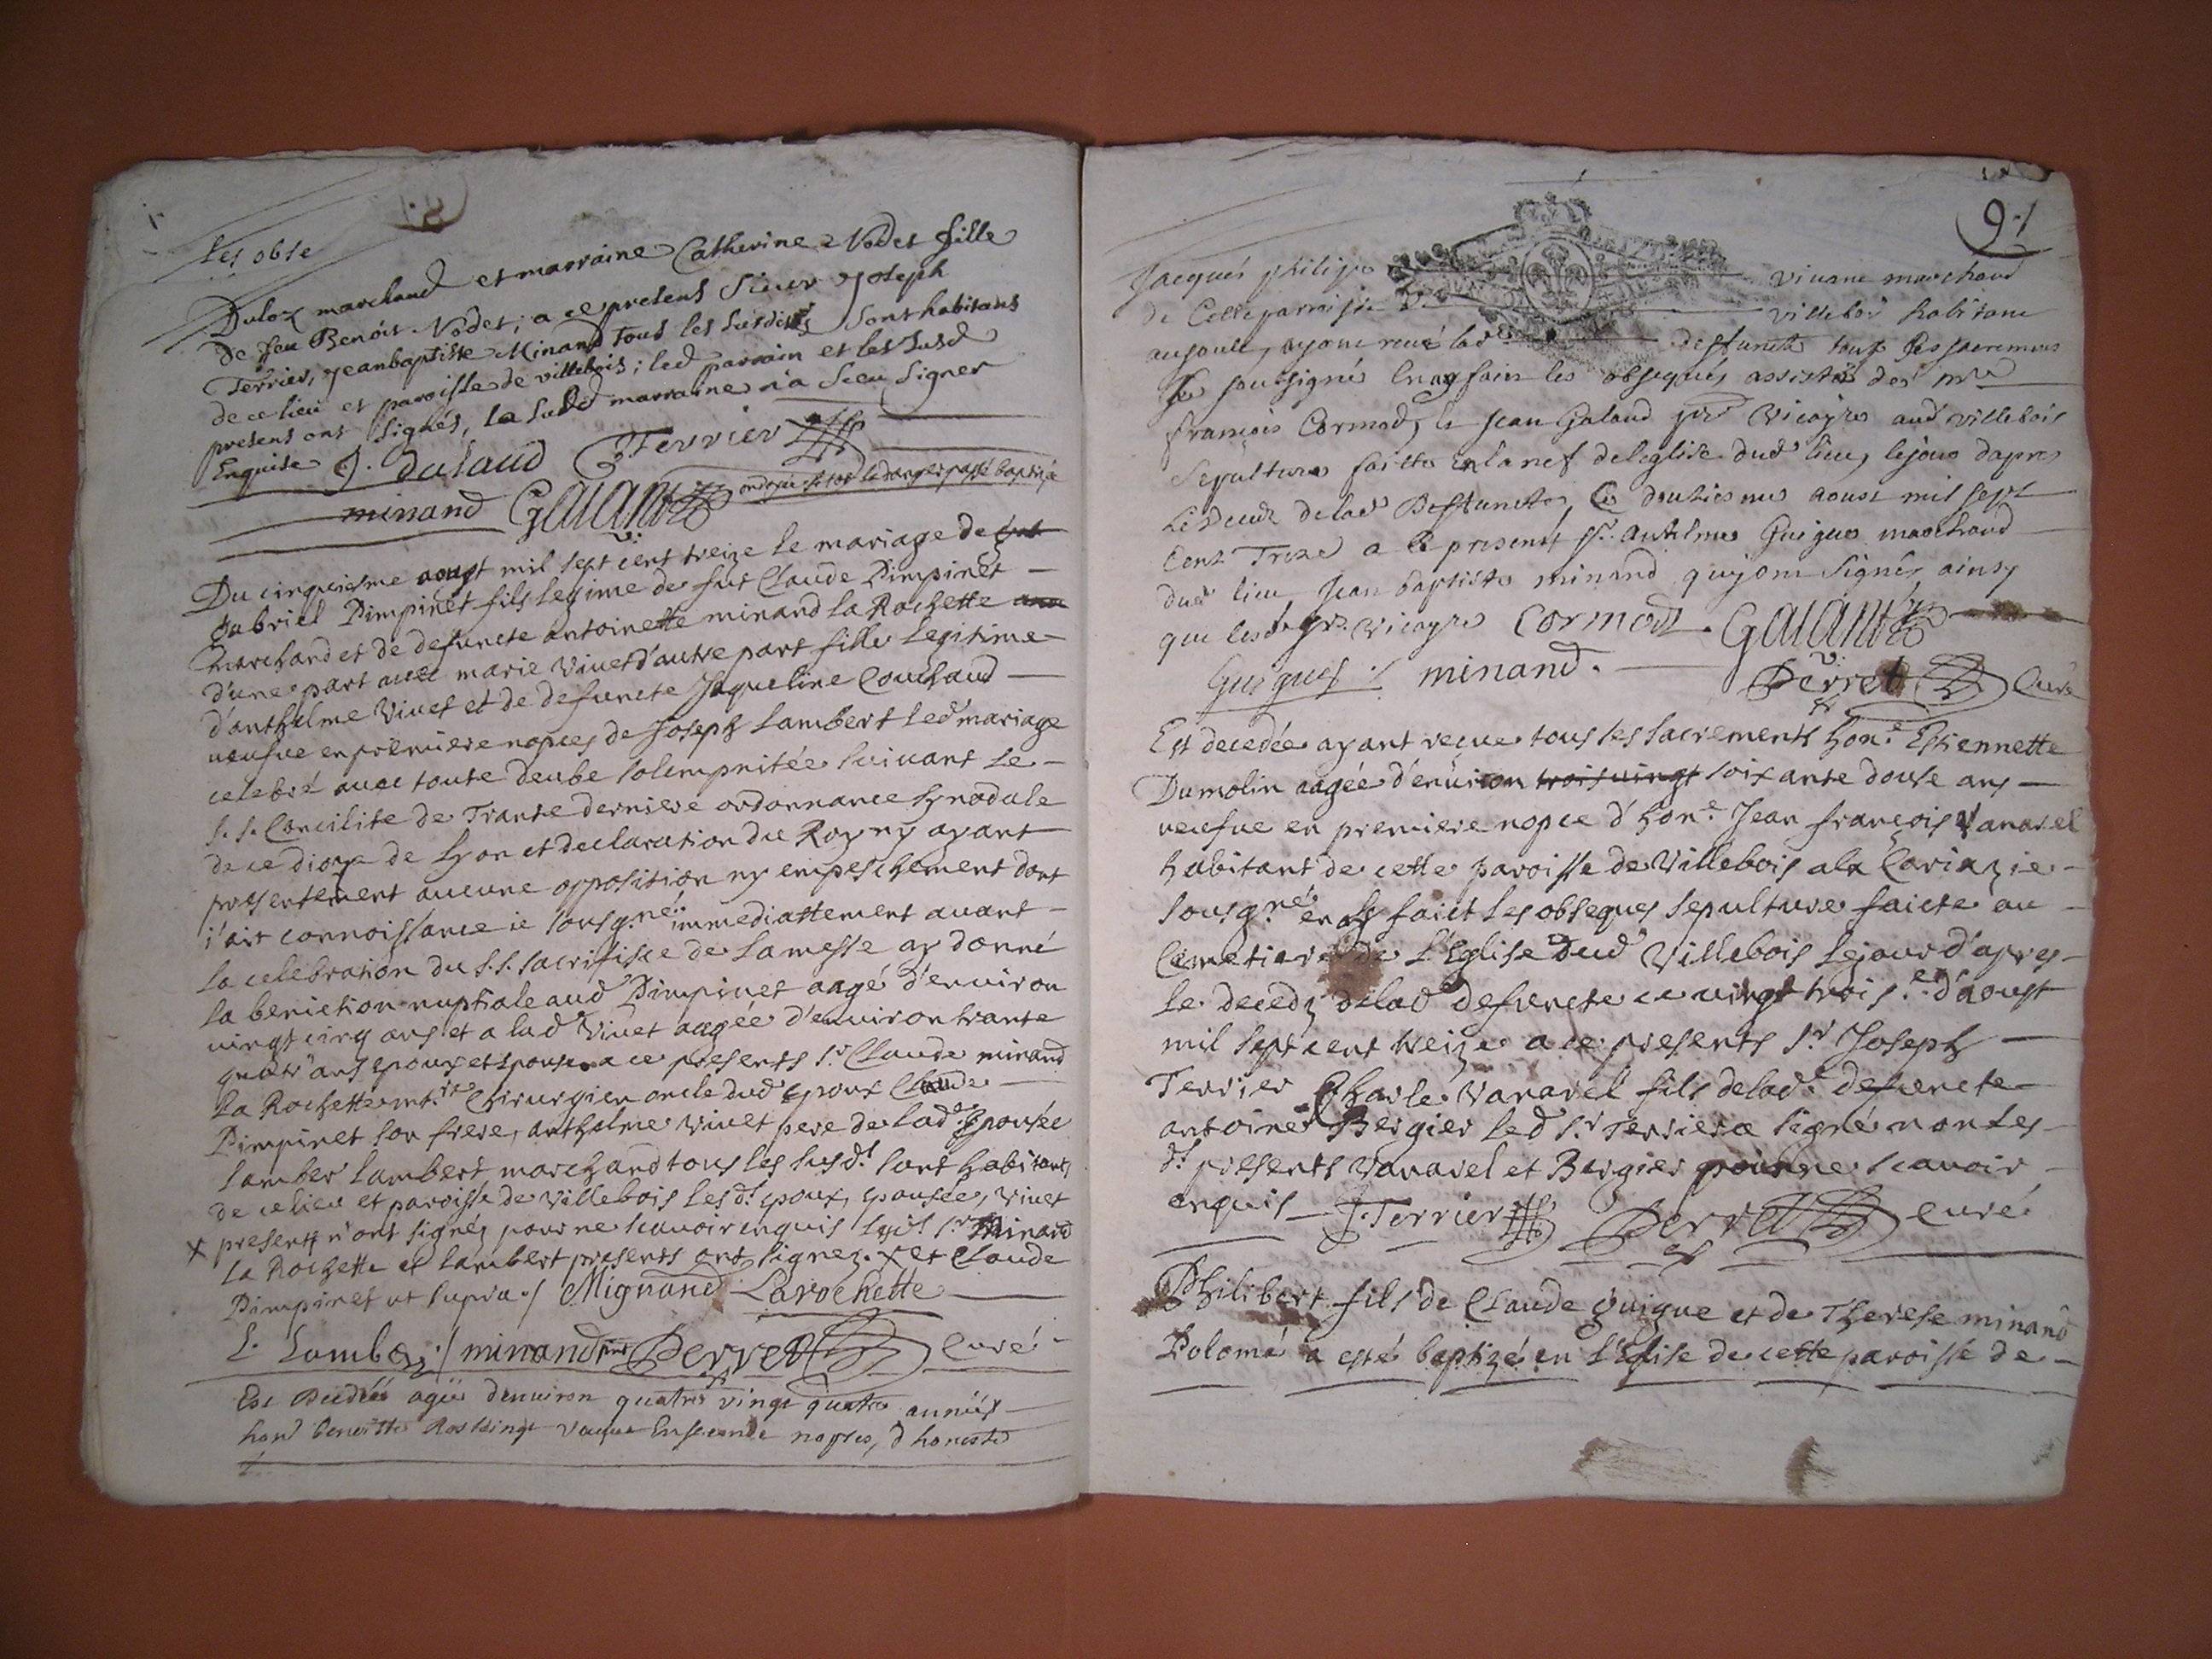 Les obse
Duloz marchand et marraine Catherine Nodet fille
de feu Benoit Nodet; a ce presens Sieur Joseph
Terrier, jeanbaptiste Minand tous les susdits sont habitans
de ce lieu et paroisse de villebois; led parrain et les susd
presens ont signés, la susd marraine n'a sceu signer
Enquise J. dulaud J Terrier
minand Galand ondoyé le danger passé baptisé
Du cinquiesme aougt mil sept cent treize le mariage de
gabriel Pimpinet fils legime de fut Claude Pimpinet
marchand et de defuncte antoinette minand la Rochette
d'une part avec marie Vivet d'autre part fille legitime
d'anthelme Vivet et de defuncte Jaqueline Couchaud
veufve en premiere nopces de Joseph Lambert led mariage
celebré avec toute deube solempnitée suivant le
S. S. Concilite de Trante derniere ordonnance synodale
de ce dioze de Lyon et declaration du Roy ny ayant
presentement aucune opposition ny empeschement dont
j'ait connoissance ie sousg.né immediattement avant
la celebration du S.S. sacrifisce de la messe ay donné
la beniction nuptiale aud Pimpinet aagé d'environ
vingt cinq ans et a lad Vivet aagée d'environ trante
quatr ans epoux et epouse a ce presents s.r Claude minand
la Rochette m.tre Chirurgien oncle dud epoux Claude
Pimpinet son frere, anthelme vivet pere de lad. Epousée
Lamber Lambert marchand tous les susd.t sont habitants
de ce lieu et paroisse de Villebois les d.t epoux, epousée, Vivet
x presents n'ont signés pour ne scavoir enquis s.r Minand
la Rochette et Lambert presents ont signez. x et Claude
Pimpinet ut supra ./ Mignand Larochette
L. Lamber ./ minand Perret Curé
Est decedée agée denviron quatre vingt quatre années
hon benoitte vefve En seconde nopces, d honeste
91
Jacques philippe vivant marchand
de Cette parroisse villebois habitant
ausault, ayant receu lad deffuncte tous ses sacremens
Je soussigné En ay fait les obseques assisté des m.re
françois Cormod, & Jean Galand p.re vicayre aud villebois
Sepulture faitte en la nef de leglise dud lieu, le jour dapres
le deceds de lad deffuncte, Ce douziesme aoust mil sept
Cent Treze a Ce presents s.r Antelme Guigue marchand
dud lieu, Jean baptiste minand quy ont signés, ainsy
que lesd pre. vicayre Cormod. Galand
Guigues ./ minand. Perret Curé
Est decedée ayant reçue tous les sacrements hon.e Estiennette
Dumolin aagée d'environ trois vingt soixante douse ans
veufve en premiere nopce d'hon.e Jean françois Vanarel
habitant de cette paroisse de Villebois a la Cariaz ie
sousg.né en ay faict les obseques sepulture faicte au
Cimetiere de L'Eglise dud Villebois le jour d'apres
le decedz de lad defuncte ce vingt trois.e d'aoust
mil sept cent treize a ce presents s.r Joseph
Terrier Charle Vanarel fils de lad. defuncte
antoine Bergier led s.r Terrier a signé non les
d.t presents Vanarel et Bergier pour ne scavoir
enquis J. Terrier Perret curé
Philibert fils de Claude guigue et de Therese minand
Polomé a esté baptizé en L'Eglise de cette paroisse de